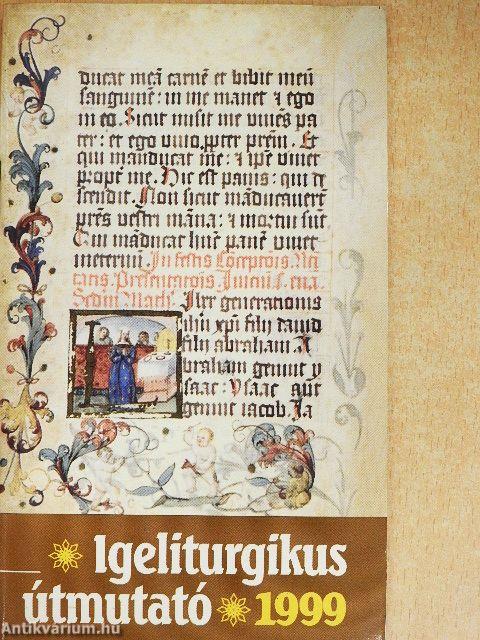 ducat meā carnē et bibit meū
sanguinē: in me manet & ego
in eo. Sicut misit me vivēs pa
ter: et ego vivo ꝓpter prēm. Et
qui māducat me: & ipse vivet
propt me. Hic est panis: qui de
scendit. Non sicut māducavert
prēs vestri māna: & mortui sūt
Qui māducat hūc panē vivet
In festis Cōceptiōis. Nati
Presentatiōis. Iniciū
Iber generationis
ihū xp̄i filij david
filij abraham. A
braham genuit y
saac: Ysaac aūt
genuit iacob. Ia
Igeliturgikus
útmutató 1999
Antikvarium.hu